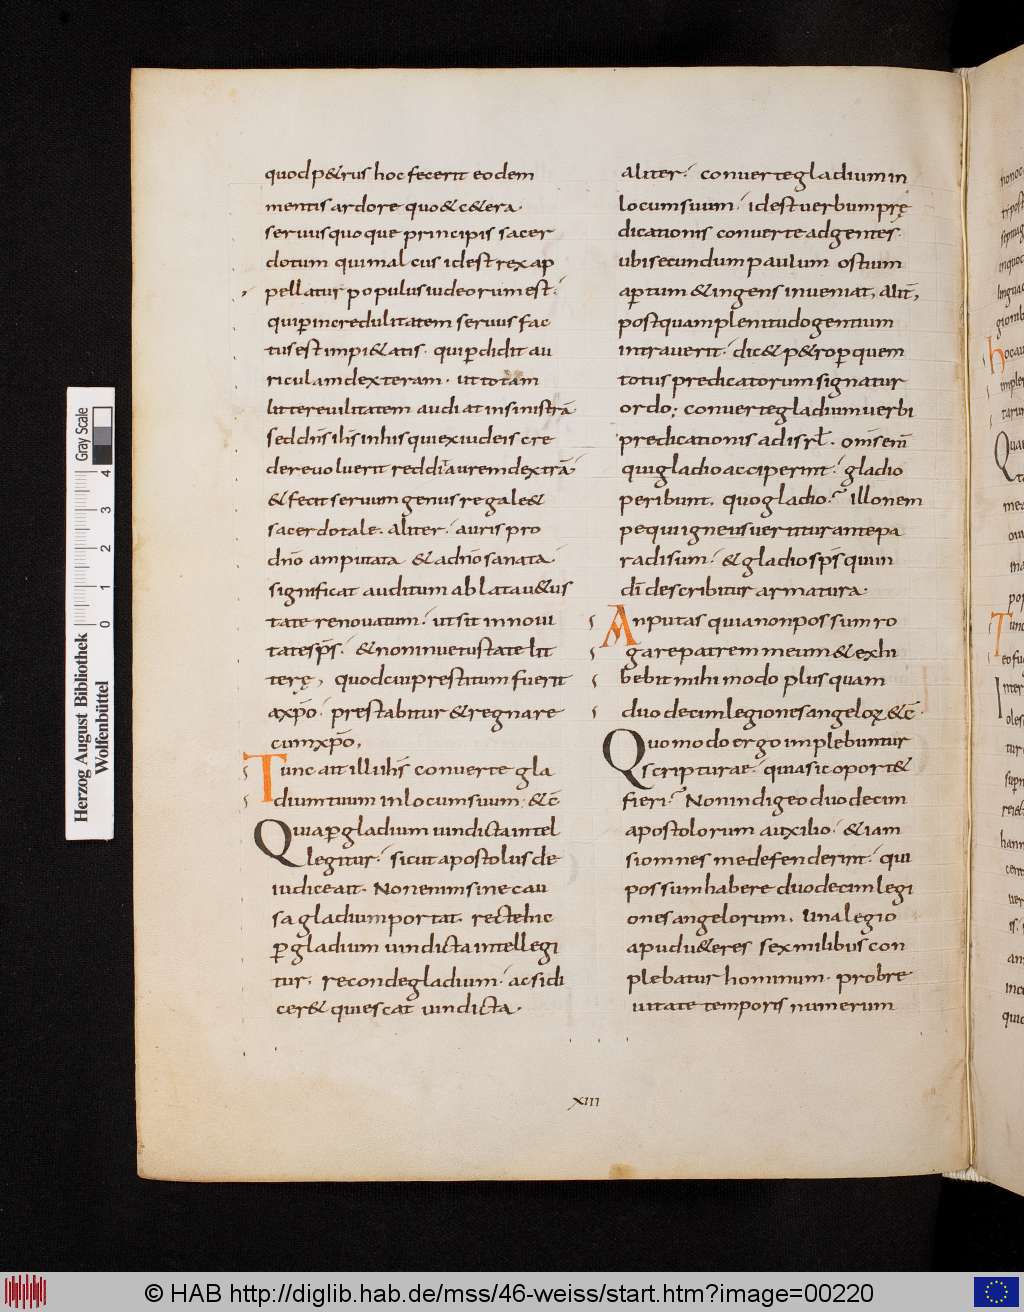 quod p&rus hoc fecerit eodem
mentis ardore quo & c&era·
seruus quoque principis sacer
dotum qui malcus id est rex ap
pellatur populus iudeorum est·
qui ꝑ incredulitatem seruus fac
tus est impi&atis· qui ꝑdidit au
riculam dexteram· ut totam
littere uilitatem audiat in sinistrā
sed dn̄s ih̄s in his qui ex iudeis cre
dere uoluerit reddit aurem dextrā
& fecit seruum genus regale &
sacerdotale· aliter· auris pro
dn̄o amputata & a dn̄o sanata·
significat auditum ablata u&us
tate renouatum· ut sit in noui
tate sp̄s· & non in uetustate lit
terę, quod cui prestitum fuerit
a xp̄o· prestabitur & regnare
cum xp̄o,
Tunc ait illi ih̄s conuerte gla
dium tuum in locum suum· &c̄
Quia ꝑ gladium uindicta intel
legitur· sicut apostolus de
iudice ait· Non enim sine cau
sa gladium portat· recte hic
ꝑ gladium uindicta intellegi
tur· reconde gladium· ac si di
cer& quiescat uindicta·
aliter· conuerte gladium in
locum suum· id est uerbum prę
dicationis conuerte ad gentes·
ubi secundum paulum ostium
aꝑtum & ingens inueniat, alit̄,
postquam plenitudo gentium
intrauerit· dic& p&ro ꝑ quem
totus predicatorum signatur
ordo; conuerte gladium uerbi
predicationis ad isrl̄· Om̄s eni͂
qui gladio acciperint· gladio
peribunt· quo gladio· illo nem
pe qui igneus uertitur ante pa
radisum· & gladio sp̄s qui in
dī describitur armatura·
An putas quia non possum ro
gare patrem meum & exhi
bebit mihi modo plus quam
duodecim legiones angeloꝝ &c̄·
Quomodo ergo implebuntur
scripturae· quia sic oport&
fieri· Non indigeo duodecim
apostolorum auxilio· & iam
si omnes me defenderint· qui
possum habere duodecim legi
ones angelorum· Una legio
apud u&eres sex milibus con
plebatur hominum· pro bre
uitate temporis numerum
xiii
Herzog August Bibliothek
Wolfenbüttel
0 1 2 3 4
Gray Scale
© HAB http://diglib.hab.de/mss/46-weiss/start.htm?image=00220